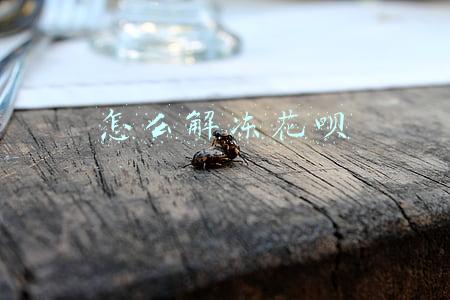 怎么解冻花呗